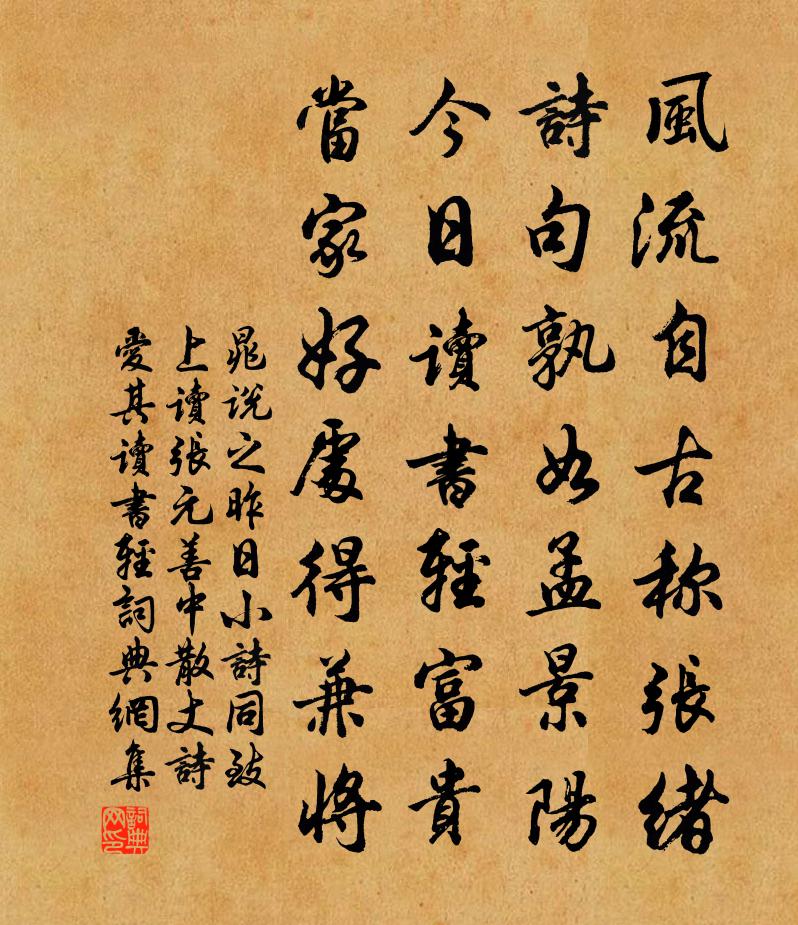 風流自古称張緒
詩句孰如孟景陽
今日讀書輕富貴
當家好處得兼將
晁説之昨日小詩同致
上讀張元善中散丈詩
愛其讀書輕詞典網集
詞典网印